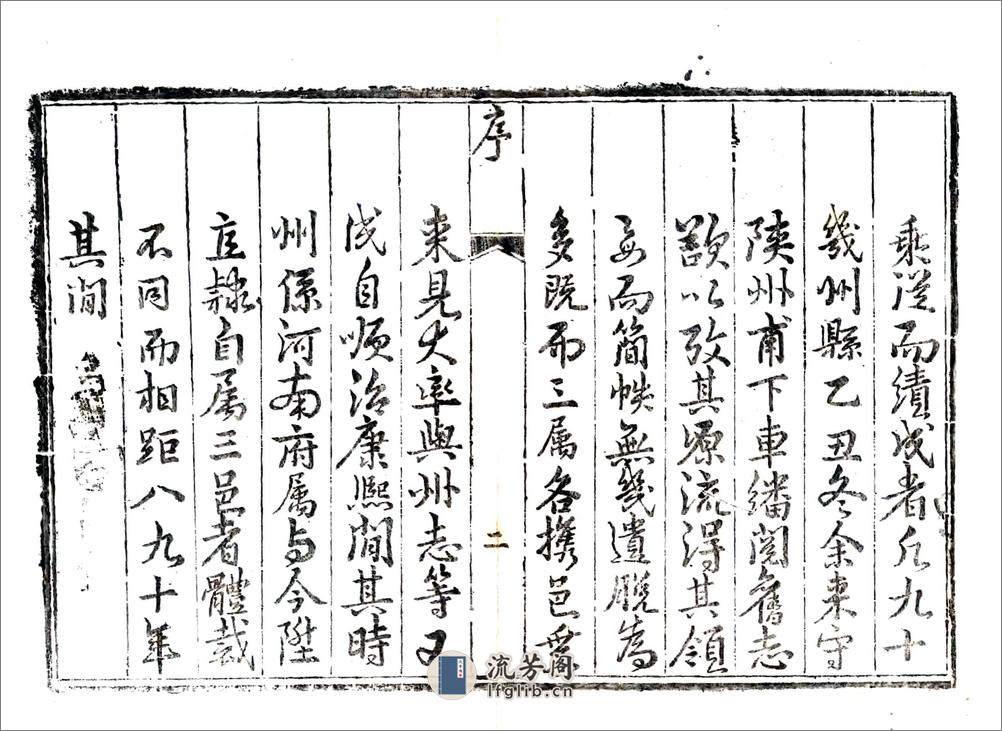 乘從而續成者凡九十
幾州縣乙丑冬余來守
陝州甫下車繙閱舊志
歎以攷其源流得其領
要而簡帙無幾遺脫為
多既而三属各携邑乘
序
二
来見大率與州志等又
成自順治康熙間其時
州係河南府属与今陞
直隸自属三邑者體裁
不同而相距八九十年
其间
流芳阁
lfglib.cn